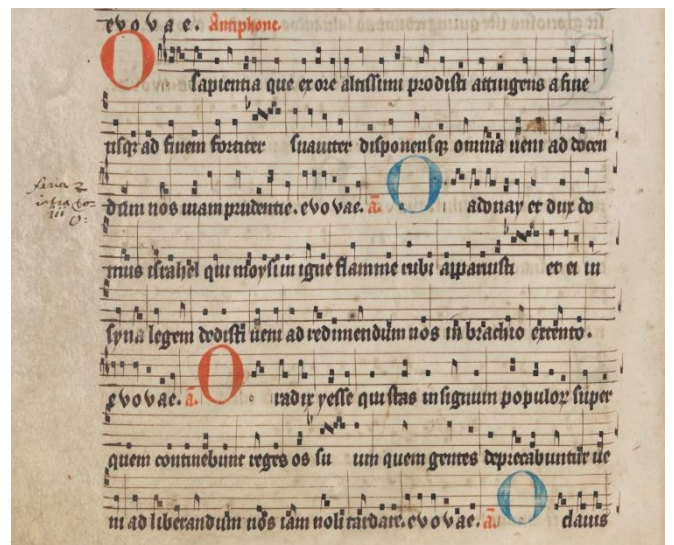 evovae. Antiphone.
O sapientia que ex ore altissimi prodisti attingens a fine
usq; ad finem fortiter suauiter disponensq; omnia ueni ad docen
dum nos uiam prudentie. evovae. a. O adonay et dux do
mus israhel qui moysi in igne flamme rubi apparuisti et ei in
syna legem dedisti ueni ad redimendum nos in brachio extento.
evovae. a. O radix yesse qui stas in signum populor super
quem continebunt reges os su um quem gentes deprecabuntur ue
ni ad liberandum nos iam noli tardare. evovae. a. O clauis
feria 2